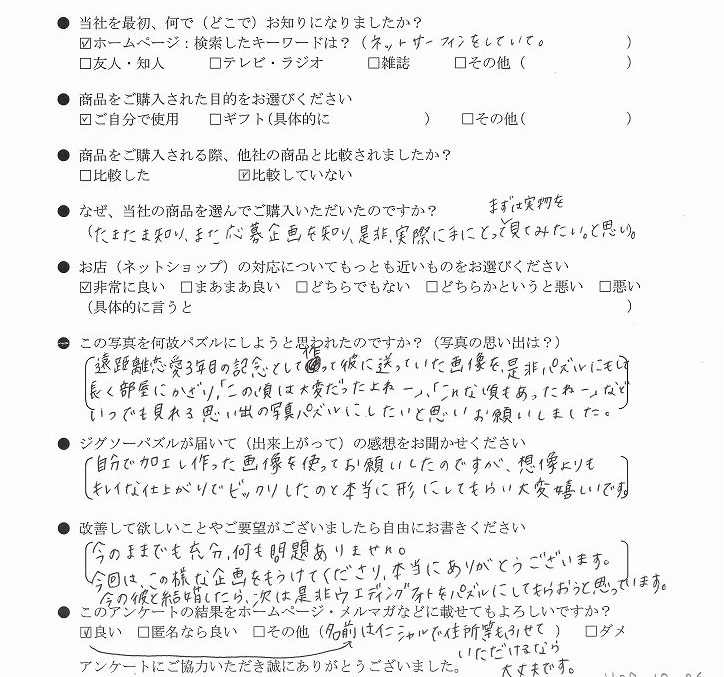 ● 当社を最初、何で（どこで）お知りになりましたか？
☑ホームページ：検索したキーワードは？（ネットサーフィンをしていて。　）
□友人・知人　□テレビ・ラジオ　□雑誌　□その他（　）
● 商品をご購入された目的をお選びください
☑ご自分で使用　□ギフト(具体的に　）　□その他(　）
● 商品をご購入される際、他社の商品と比較されましたか？
□比較した　☑比較していない
● なぜ、当社の商品を選んでご購入いただいたのですか？
まずは実物を
（たまたま知り、また応募企画を知り、是非、実際に手にとって見てみたい。と思い）。
● お店（ネットショップ）の対応についてもっとも近いものをお選びください
☑非常に良い　□まあまあ良い　□どちらでもない　□どちらかというと悪い　□悪い
（具体的に言うと　）
● この写真を何故パズルにしようと思われたのですか？（写真の思い出は？）
遠距離恋愛3年目の記念として作って彼に送っていた画像を、是非パズルにもして
長く部屋にかざり、「この頃は大変だったよねー」、「こんな頃もあったねー」など
いつでも見れる思い出の写真パズルにしたいと思いお願いしました。
● ジグソーパズルが届いて（出来上がって）の感想をお聞かせください
自分で加工し作った画像を使ってお願いしたのですが、想像よりも
キレイな仕上がりでビックリしたのと本当に形にしてもらい大変嬉しいです。
● 改善して欲しいことやご要望がございましたら自由にお書きください
今のままでも充分、何も問題ありません。
今回は、この様な企画をもうけてくださり、本当にありがとうございます。
今の彼と結婚したら、次は是非ウエディングフォトをパズルにしてもらおうと思っています。
● このアンケートの結果をホームページ・メルマガなどに載せてもよろしいですか？
☑良い　□匿名なら良い　□その他（名前はイニシャルで住所等もふせて　）　□ダメ
いただけるなら
大丈夫です。
アンケートにご協力いただき誠にありがとうございました。